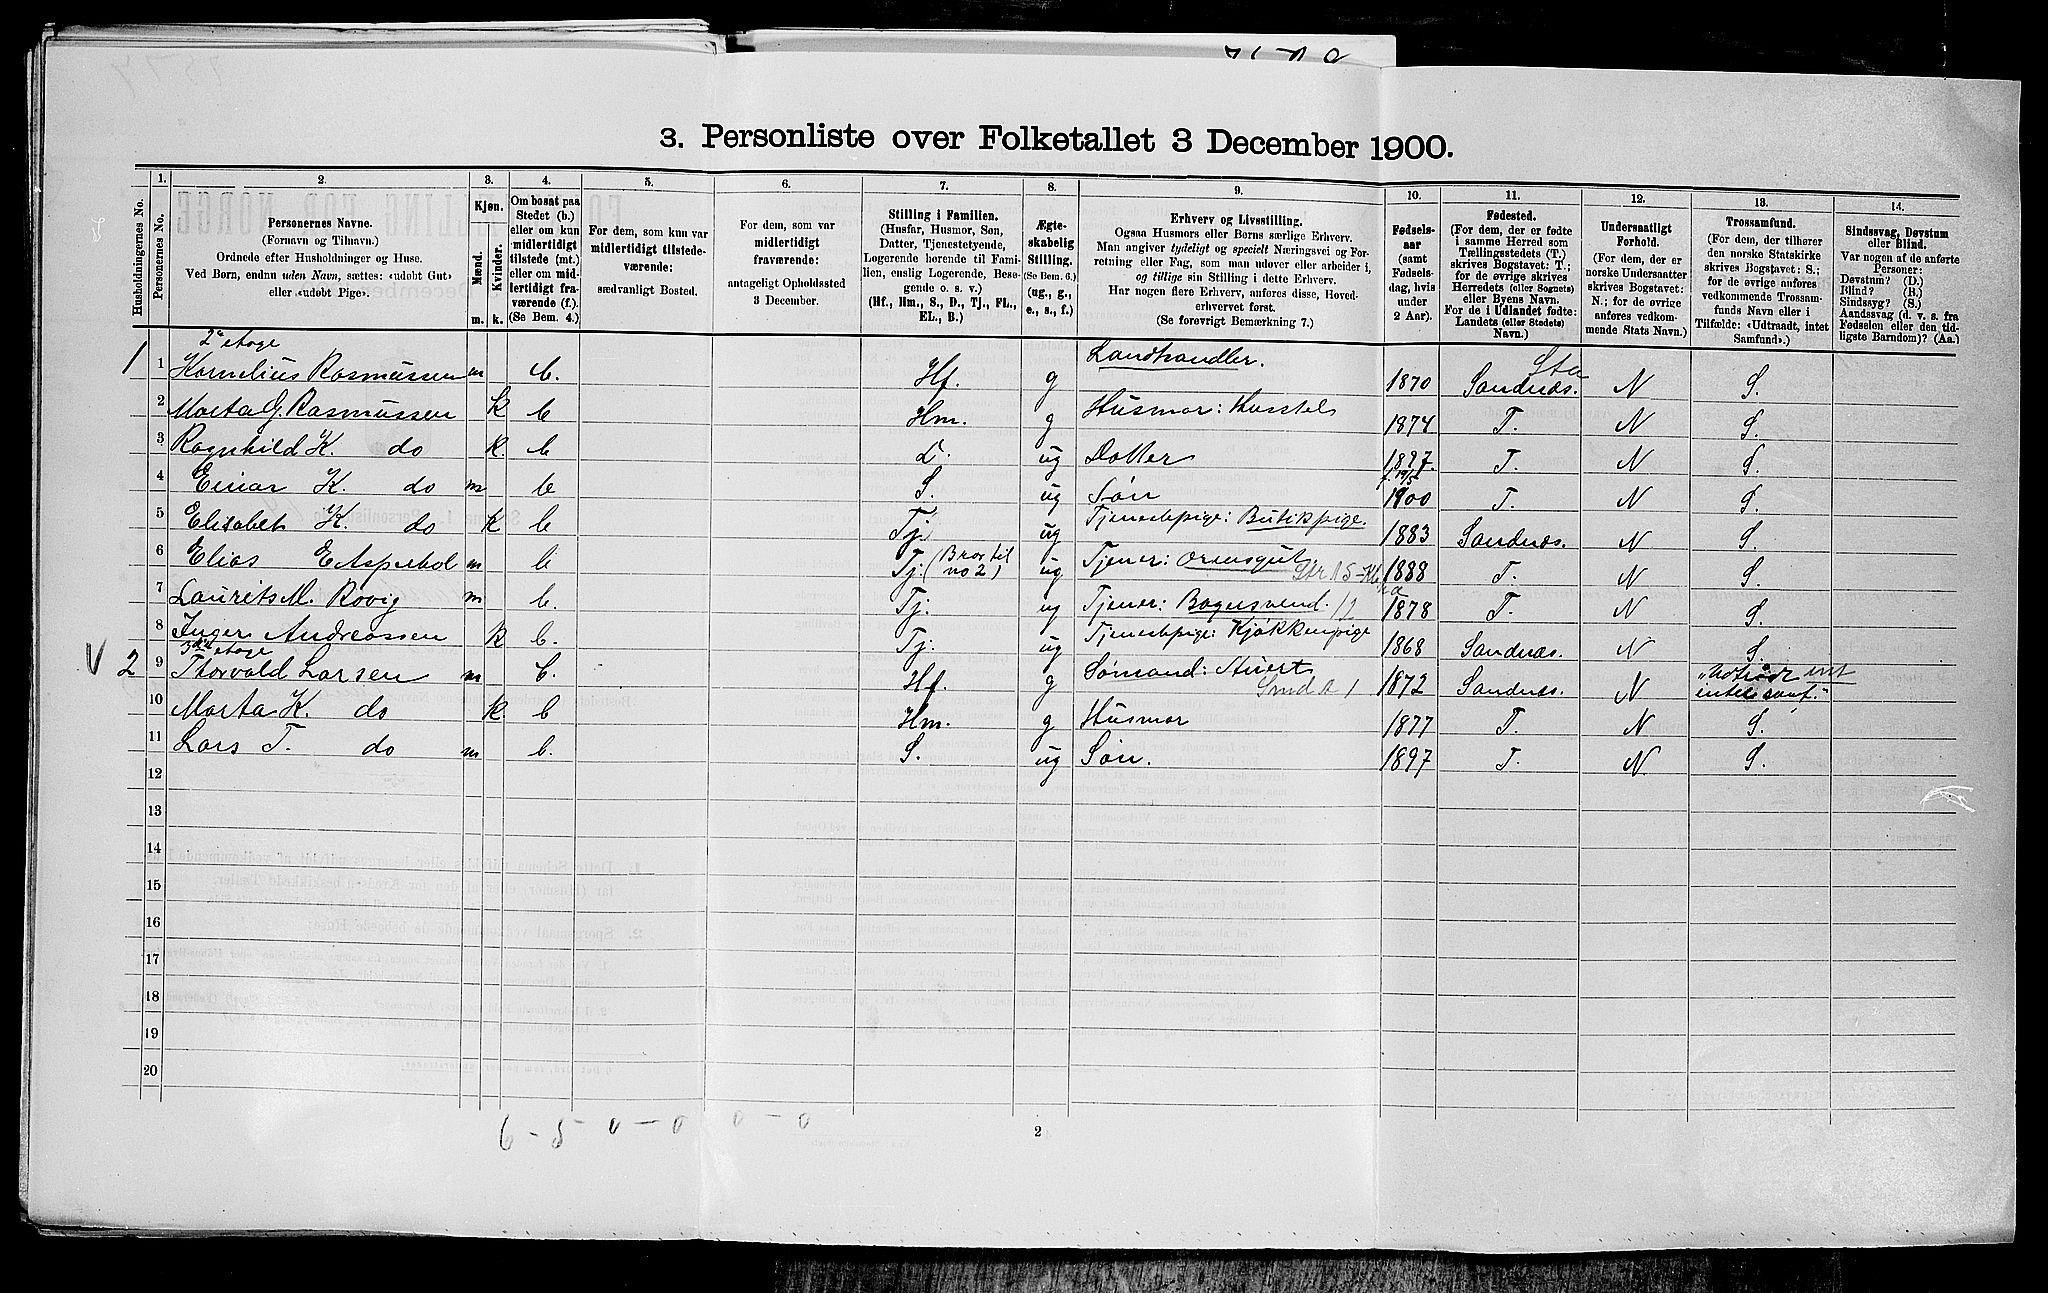 3. Personliste over Folketallet 3 December 1900.
Husholdningernes No.
1.
Personernes No.
2.
Personernes Navne.
(Fornavn og Tilnavn.)
Ordnede efter Husholdninger og Huse.
Ved Børn, endnu uden Navn, sættes: «udøbt Gut»
eller «udøbt Pige».
3.
Kjøn.
Mænd.
Kvinder.
m.
k.
4.
Om bosat paa
Stedet (b.)
eller om kun
midlertidigt
tilstede (mt.)
eller om mid-
lertidigt fra-
værende (f.).
(Se Bem. 4.)
5.
For dem, som kun var
midlertidigt tilstede-
værende:
sædvanligt Bosted.
6.
For dem, som var
midlertidigt
fraværende:
antageligt Opholdssted
3 December.
7.
Stilling i Familien.
(Husfar, Husmor, Søn,
Datter, Tjenestetyende,
Logerende hørende til Fami-
lien, enslig Logerende, Besø-
gende o. s. v.)
(Hf., Hm., S., D., Tj., FL.,
EL., B.)
8.
Ægte-
skabelig
Stilling.
(Se Bem. 6.)
(ug., g.,
e., s., f.)
9.
Erhverv og Livsstilling.
Ogsaa Husmors eller Børns særlige Erhverv.
Man angiver tydeligt og specielt Næringsvei og For-
retning eller Fag, som man udøver eller arbeider i,
og tillige sin Stilling i dette Erhverv.
Har nogen flere Erhverv, anføres disse, Hoved-
erhvervet først.
(Se forøvrigt Bemærkning 7.)
10.
Fødsels-
aar
(samt
Fødsels-
dag, hvis
under
2 Aar).
11.
Fødested.
(For dem, der er fødte
i samme Herred som
Tællingsstedets (T.)
skrives Bogstavet: T.;
for de øvrige skrives
Herredets (eller Sognets)
eller Byens Navn.
For de i Udlandet fødte:
Landets (eller Stedets)
Navn.)
12.
Undersaatligt
Forhold.
(For dem, der er
norske Undersaatter
skrives Bogstavet:
N.; for de øvrige
anføres vedkom-
mende Stats Navn.)
13.
Trossamfund.
(For dem, der tilhører
den norske Statskirke
skrives Bogstavet: S.;
for de øvrige anføres
vedkommende Trossam-
funds Navn eller i
Tilfælde: «Udtraadt, intet
Samfund».)
14.
Sindssvag, Døvstum
eller Blind.
Var nogen af de anførte
Personer:
Døvstum? (D.)
Blind? (B.)
Sindssyg? (S.)
Aandssvag (d. v. s. fra
Fødselen eller den tid-
ligste Barndom)? (Aa.)
2den etage
1 1 Kornelius Rasmussen m b. Hf. g Landhandler. 1870 Sandnæs. N S.
2 Marta G. Rasmussen k b Hm. g Husmor: Husstel 1874 T. N S.
3 Ragnhild K. do k b D. ug Datter 1897 T. N S.
4 Einar K. do m b S. ug Søn 1900 T. N S.
5 Elisabet K. do k b Tj. ug Tjenestepige: Butikpige. 1883 Sandnæs. N S.
6 Elias E. Aspebol m b Tj. (Bror til no 2) ug Tjener: 1888 T. N S.
7 Laurits M. Rovig m b. Tj. ug Tjener: Bagersvend. 1878 T. N S.
8 Inger Andreassen k b. Tj. ug Tjenestepige: Kjøkkenpige 1868 Sandnæs. N S.
3die etage
2 9 Thorvald Larsen m b. Hf. g Sømand: Stuert 1872 Sandnæs. N
10 Marta K. do k b Hm. g Husmor 1877 T. N S.
11 Lars T. do m b. S. ug Søn. 1897 T. N. S.
12
13
14
15
16
17
18
19
20
6 - 5 0 - 0 0 - 0
2